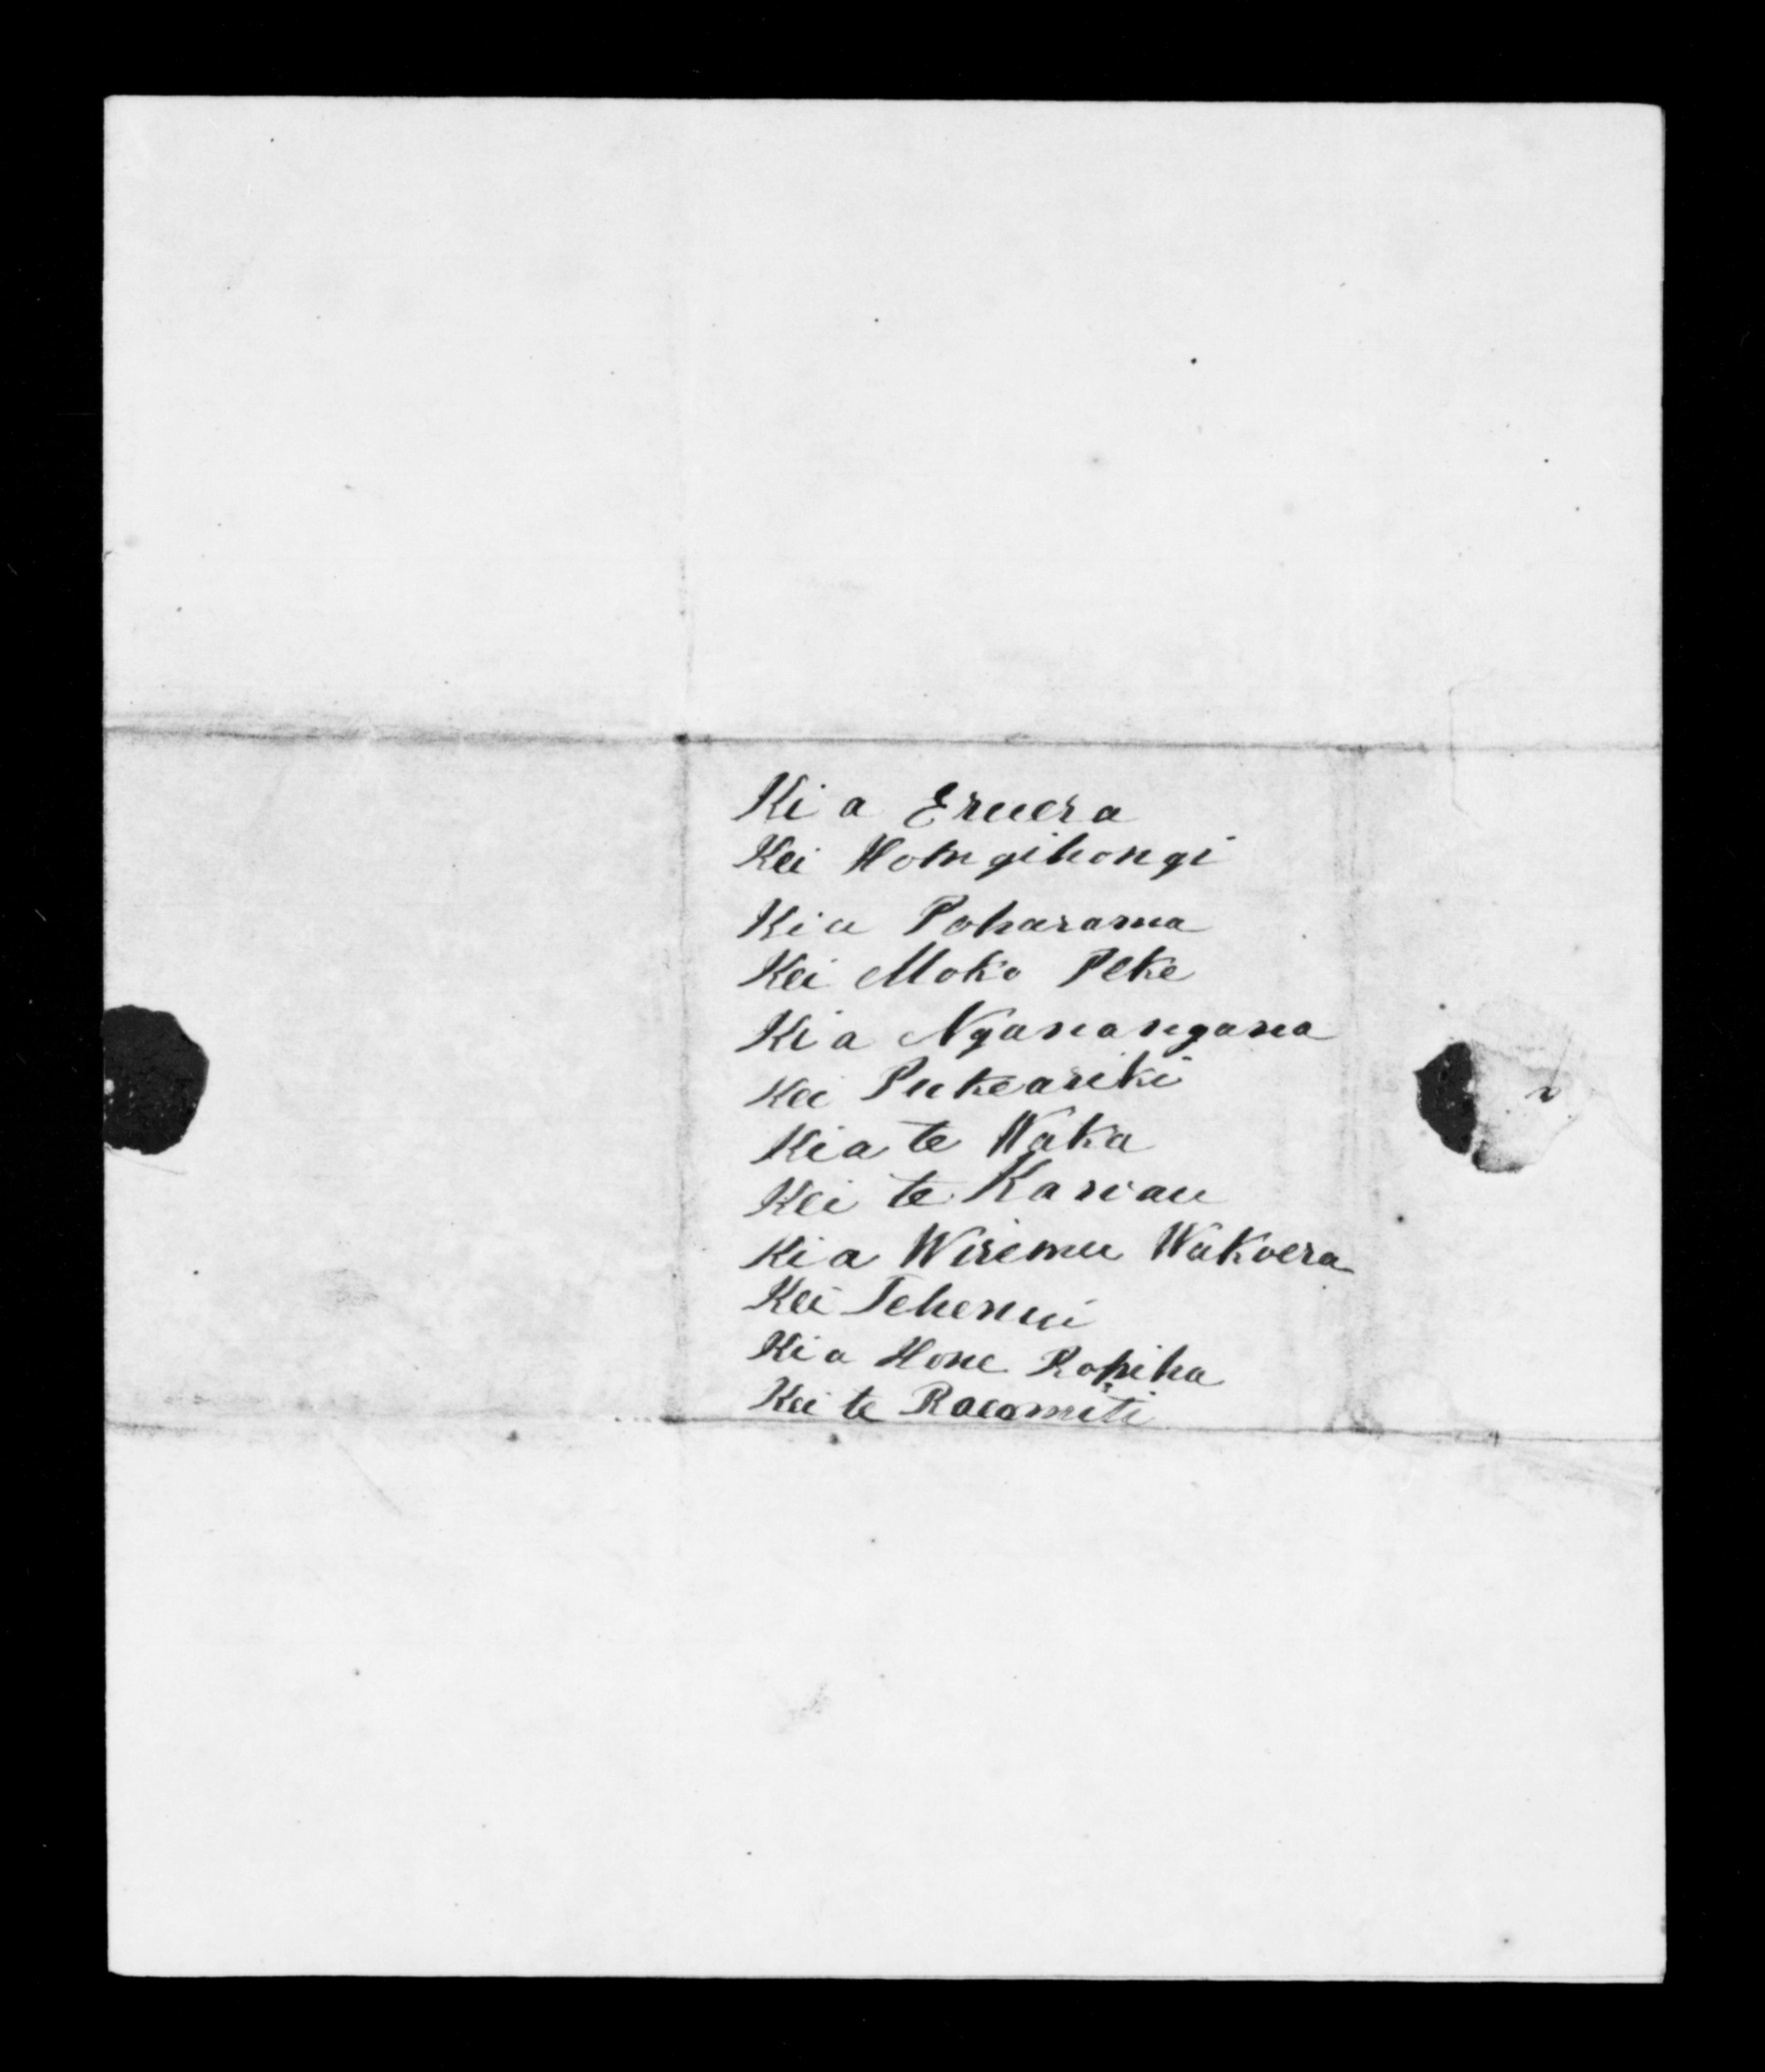 Ki a Eruera
Kei Hongihongi
Ki a Poharama
Kei Moko Peke
Ki a Nganangana
Kei Pukeariki
Ki a te Waka
Kei te Kawau
Ki a Wiremu Wakoera
Kei Tehenui
Ki a Hone Ropiha
Kei te